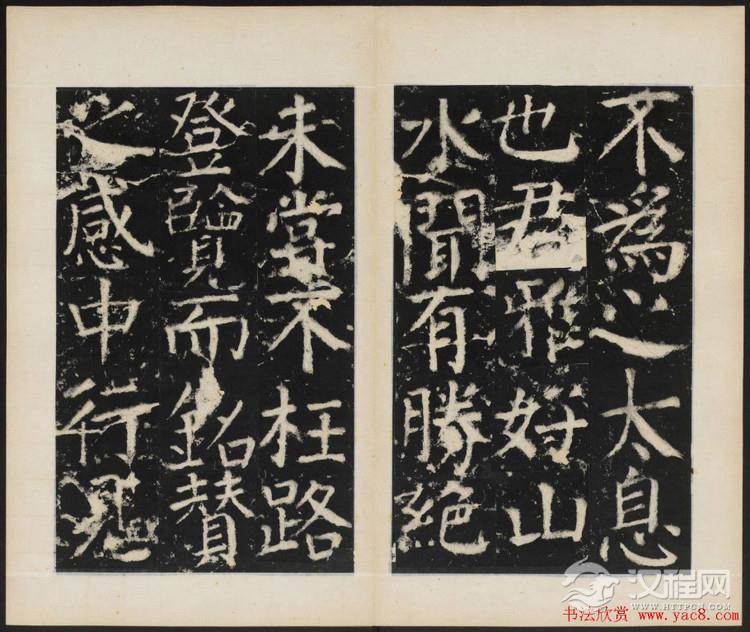 不爲之太息
也君雅好山
水聞有勝絕
未嘗不枉路
登臨覽而銘賛
之感中行見
汉程网
WWW.HTTPCN.COM
书法欣赏 www.yac8.com